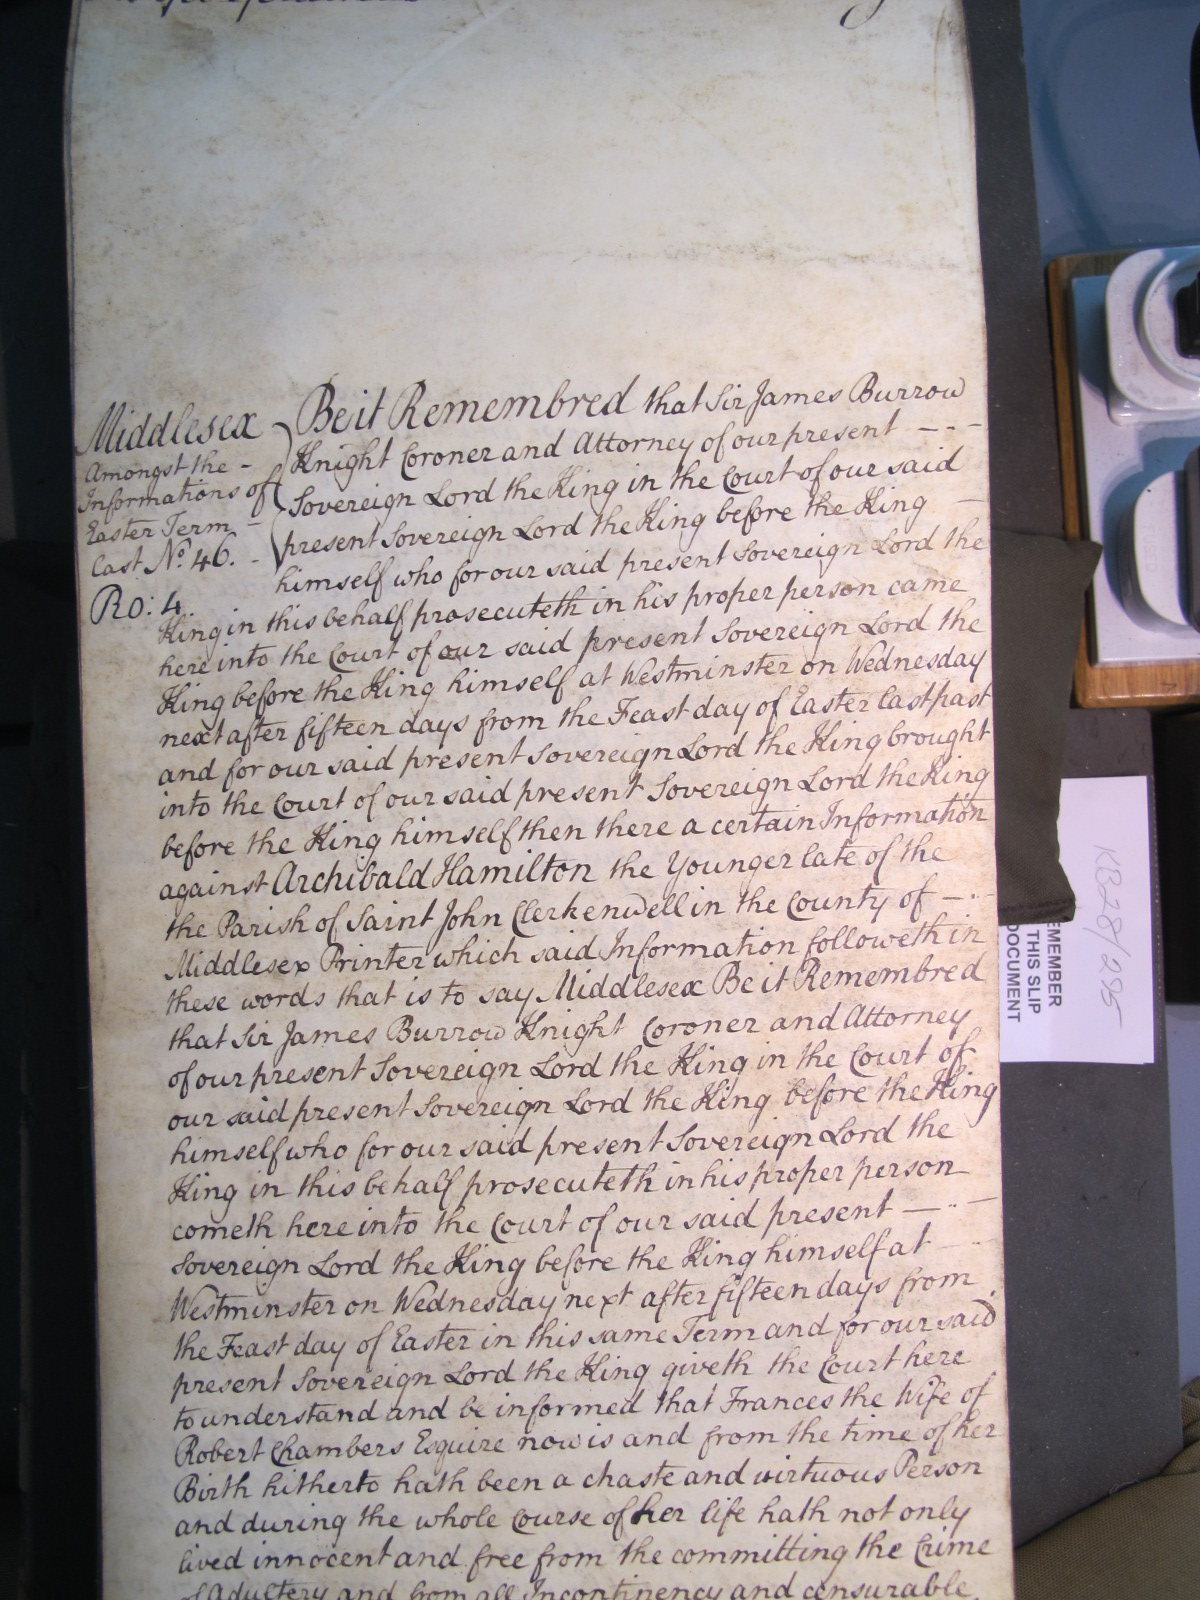 Middlesex
Amongst the -
Informations of
Easter Term -
Last No. 46. -
Ro: 4.
Be it Remembred that Sir James Burrow
Knight Coroner and Attorney of our present - - -
Sovereign Lord the King in the Court of our said
present Sovereign Lord the King before the King -
himself who for our said present Sovereign Lord the
King in this behalf prosecuteth in his proper person came
here into the Court of our said present Sovereign Lord the
King before the King himself at Westminster on Wednesday
next after fifteen days from the Feast day of Easter last past
and for our said present Sovereign Lord the King brought
into the Court of our said present Sovereign Lord the King
before the King himself then there a certain Information
against Archibald Hamilton the Younger late of the
the Parish of Saint John Clerkenwell in the County of -
Middlesex Printer which said Information followeth in
these words that is to say Middlesex Be it Remembred
that Sir James Burrow Knight Coroner and Attorney
of our present Sovereign Lord the King in the Court of
our said present Sovereign Lord the King before the King
himself who for our said present Sovereign Lord the
King in this behalf prosecuteth in his proper person
cometh here into the Court of our said present - -
Sovereign Lord the King before the King himself at
Westminster on Wednesday next after fifteen days from
the Feast day of Easter in this same Term and for our said
present Sovereign Lord the King giveth the Court here
to understand and be informed that Frances the Wife of
Robert Chambers Esquire now is and from the time of her
Birth hitherto hath been a chaste and virtuous Person
and during the whole Course of her life hath not only
lived innocent and free from the committing the Crime
of Adultery and from all Incontinency and censurable
KB28/295
EMEMBER
THIS SLIP
DOCUMENT